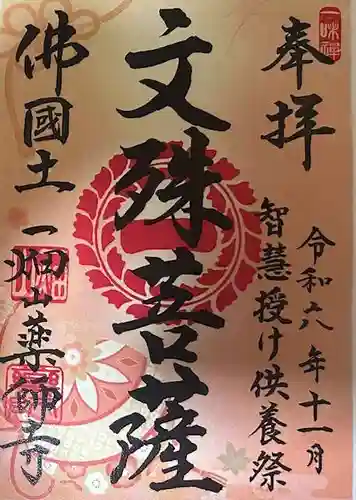 一味禅
奉拝
令和六年十一月
智慧授け供養祭
文殊菩薩
佛國土
一畑山薬師寺